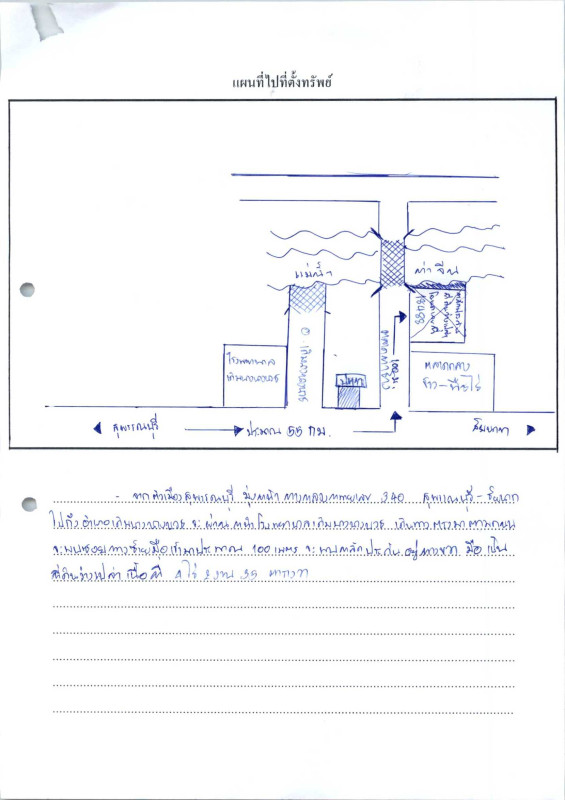 แผนที่ไปที่ตั้งทรัพย์
แม่น้ำ
ท่าจีน
อ.เดิมบางนางบวช
100 ม.
18488
โรงพยาบาล
เดิมบางนางบวช
ปตท
สุพรรณบุรี
ประมาณ 55 กม.
ชัยนาท
- จากตัวเมืองสุพรรณบุรี มุ่งหน้า ทางหลวงหมายเลข 340 สุพรรณบุรี - ชัยนาท
ไปถึงอำเภอเดิมบางนางบวช จะผ่านหน้าโรงพยาบาลเดิมบางนางบวช เดินทางตรงมาตามถนน
จะพบซอยทางซ้ายมือเข้ามาประมาณ 100 เมตร จะพบหลักประกันอยู่ทางขวามือ เป็น
ที่ดินว่างเปล่า เนื้อที่ 4 ไร่ 2 งาน 35 ตารางวา